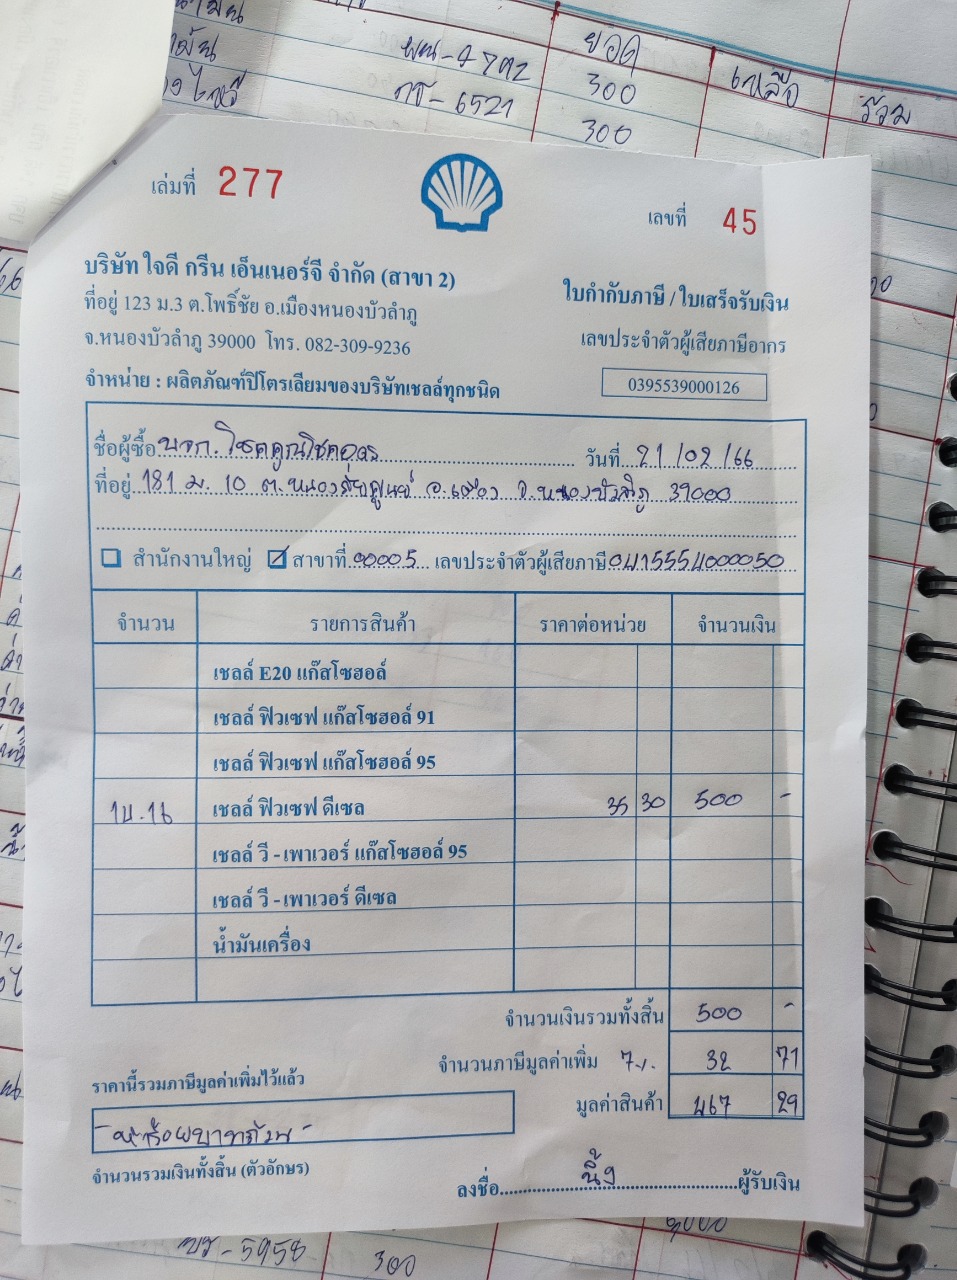 พน-4792 ยอด
300 เหลือ รวม
กร-6521
300
เล่มที่ 277
เลขที่ 45
บริษัท ใจดี กรีน เอ็นเนอร์จี จำกัด (สาขา 2)
ที่อยู่ 123 ม.3 ต.โพธิ์ชัย อ.เมืองหนองบัวลำภู
จ.หนองบัวลำภู 39000 โทร. 082-309-9236
ใบกำกับภาษี / ใบเสร็จรับเงิน
เลขประจำตัวผู้เสียภาษีอากร
0395539000126
จำหน่าย : ผลิตภัณฑ์ปิโตรเลียมของบริษัทเชลล์ทุกชนิด
ชื่อผู้ซื้อ บจก. วันที่ 21/02/66
ที่อยู่ 181 ม. 10 ต. อ.เมือง จ.หนองบัวลำภู 39000
สำนักงานใหญ่ สาขาที่ 00005 เลขประจำตัวผู้เสียภาษี 0415554000050
จำนวน รายการสินค้า ราคาต่อหน่วย จำนวนเงิน
เชลล์ E20 แก๊สโซฮอล์
เชลล์ ฟิวเซฟ แก๊สโซฮอล์ 91
เชลล์ ฟิวเซฟ แก๊สโซฮอล์ 95
14.16 เชลล์ ฟิวเซฟ ดีเซล 35 30 500 -
เชลล์ วี - เพาเวอร์ แก๊สโซฮอล์ 95
เชลล์ วี - เพาเวอร์ ดีเซล
น้ำมันเครื่อง
จำนวนเงินรวมทั้งสิ้น 500 -
จำนวนภาษีมูลค่าเพิ่ม 7% 32 71
ราคานี้รวมภาษีมูลค่าเพิ่มไว้แล้ว
มูลค่าสินค้า 467 29
- ห้าร้อยบาทถ้วน -
จำนวนรวมเงินทั้งสิ้น (ตัวอักษร)
ลงชื่อ ผู้รับเงิน
-5958 300